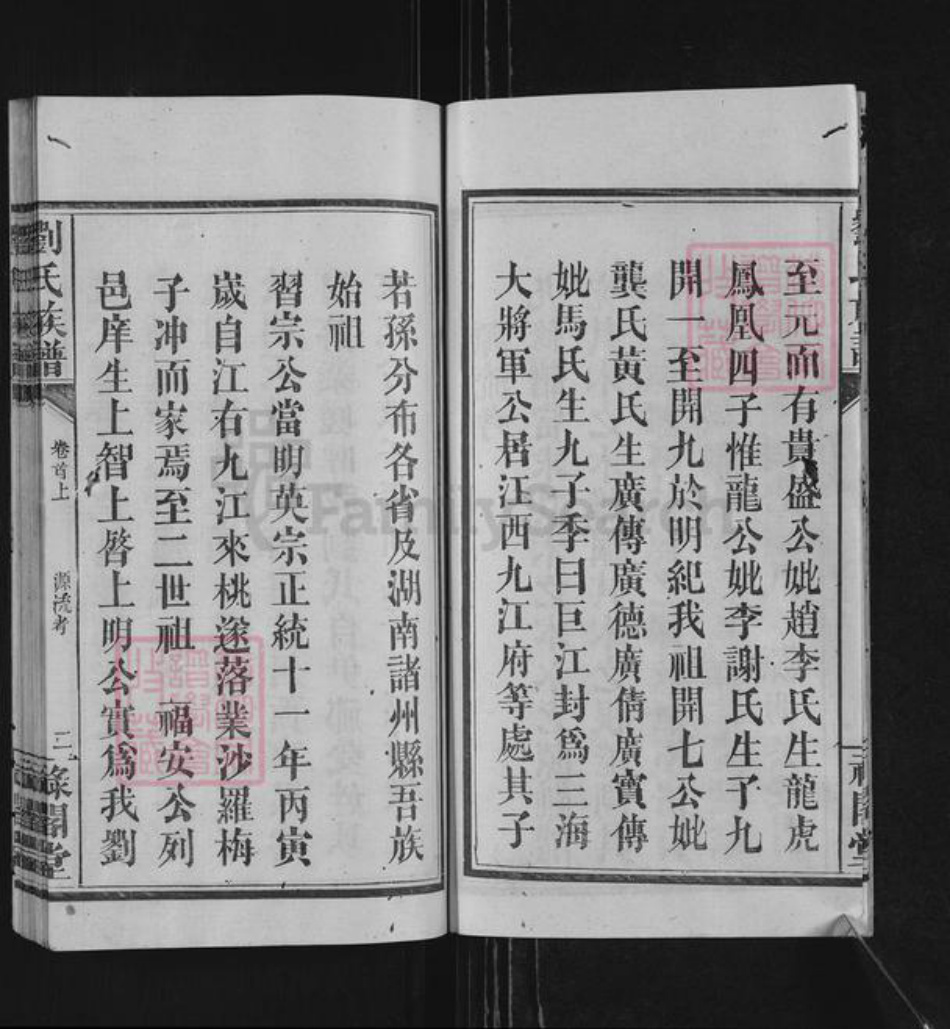 至元而有貴盛公妣趙李氏生龍虎
鳳凰四子惟龍公妣李謝氏生子九
開一至開九於明紀我祖開七公妣
龔氏黃氏生廣傳廣德廣倩廣實傳
妣馬氏生九子季曰巨江封爲三海
大將軍公居江西九江府等處其子
若孫分布各省及湖南諸州縣吾族
始祖
習宗公當明英宗正統十一年丙寅
歲自江右九江來桃遂落業沙羅梅
子冲而家焉至二世祖 福安公列
邑庠生上智上啓上明公實爲我劉
劉氏族譜
卷首上
源流考
三
祿閣堂
FamilySearch